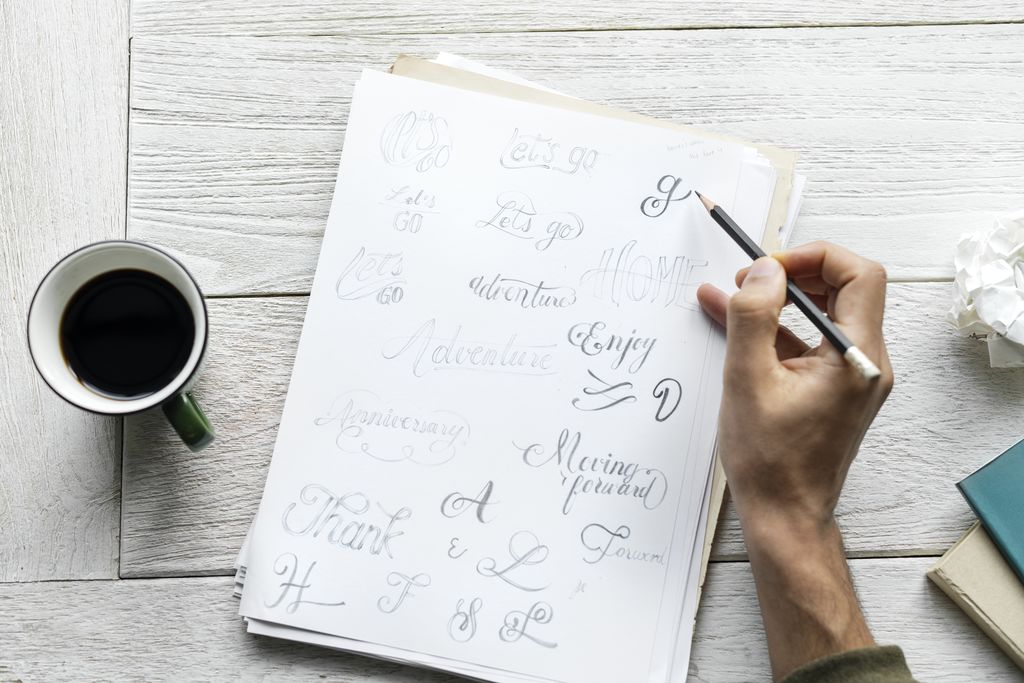 Let's go
Let's go
g
Let's
GO
Lets go
Let's
GO
adventure
HOME
Adventure
Enjoy
D
Anniversary
Moving
forward
Thank
A
Forward
ε
L
H
F
S
L